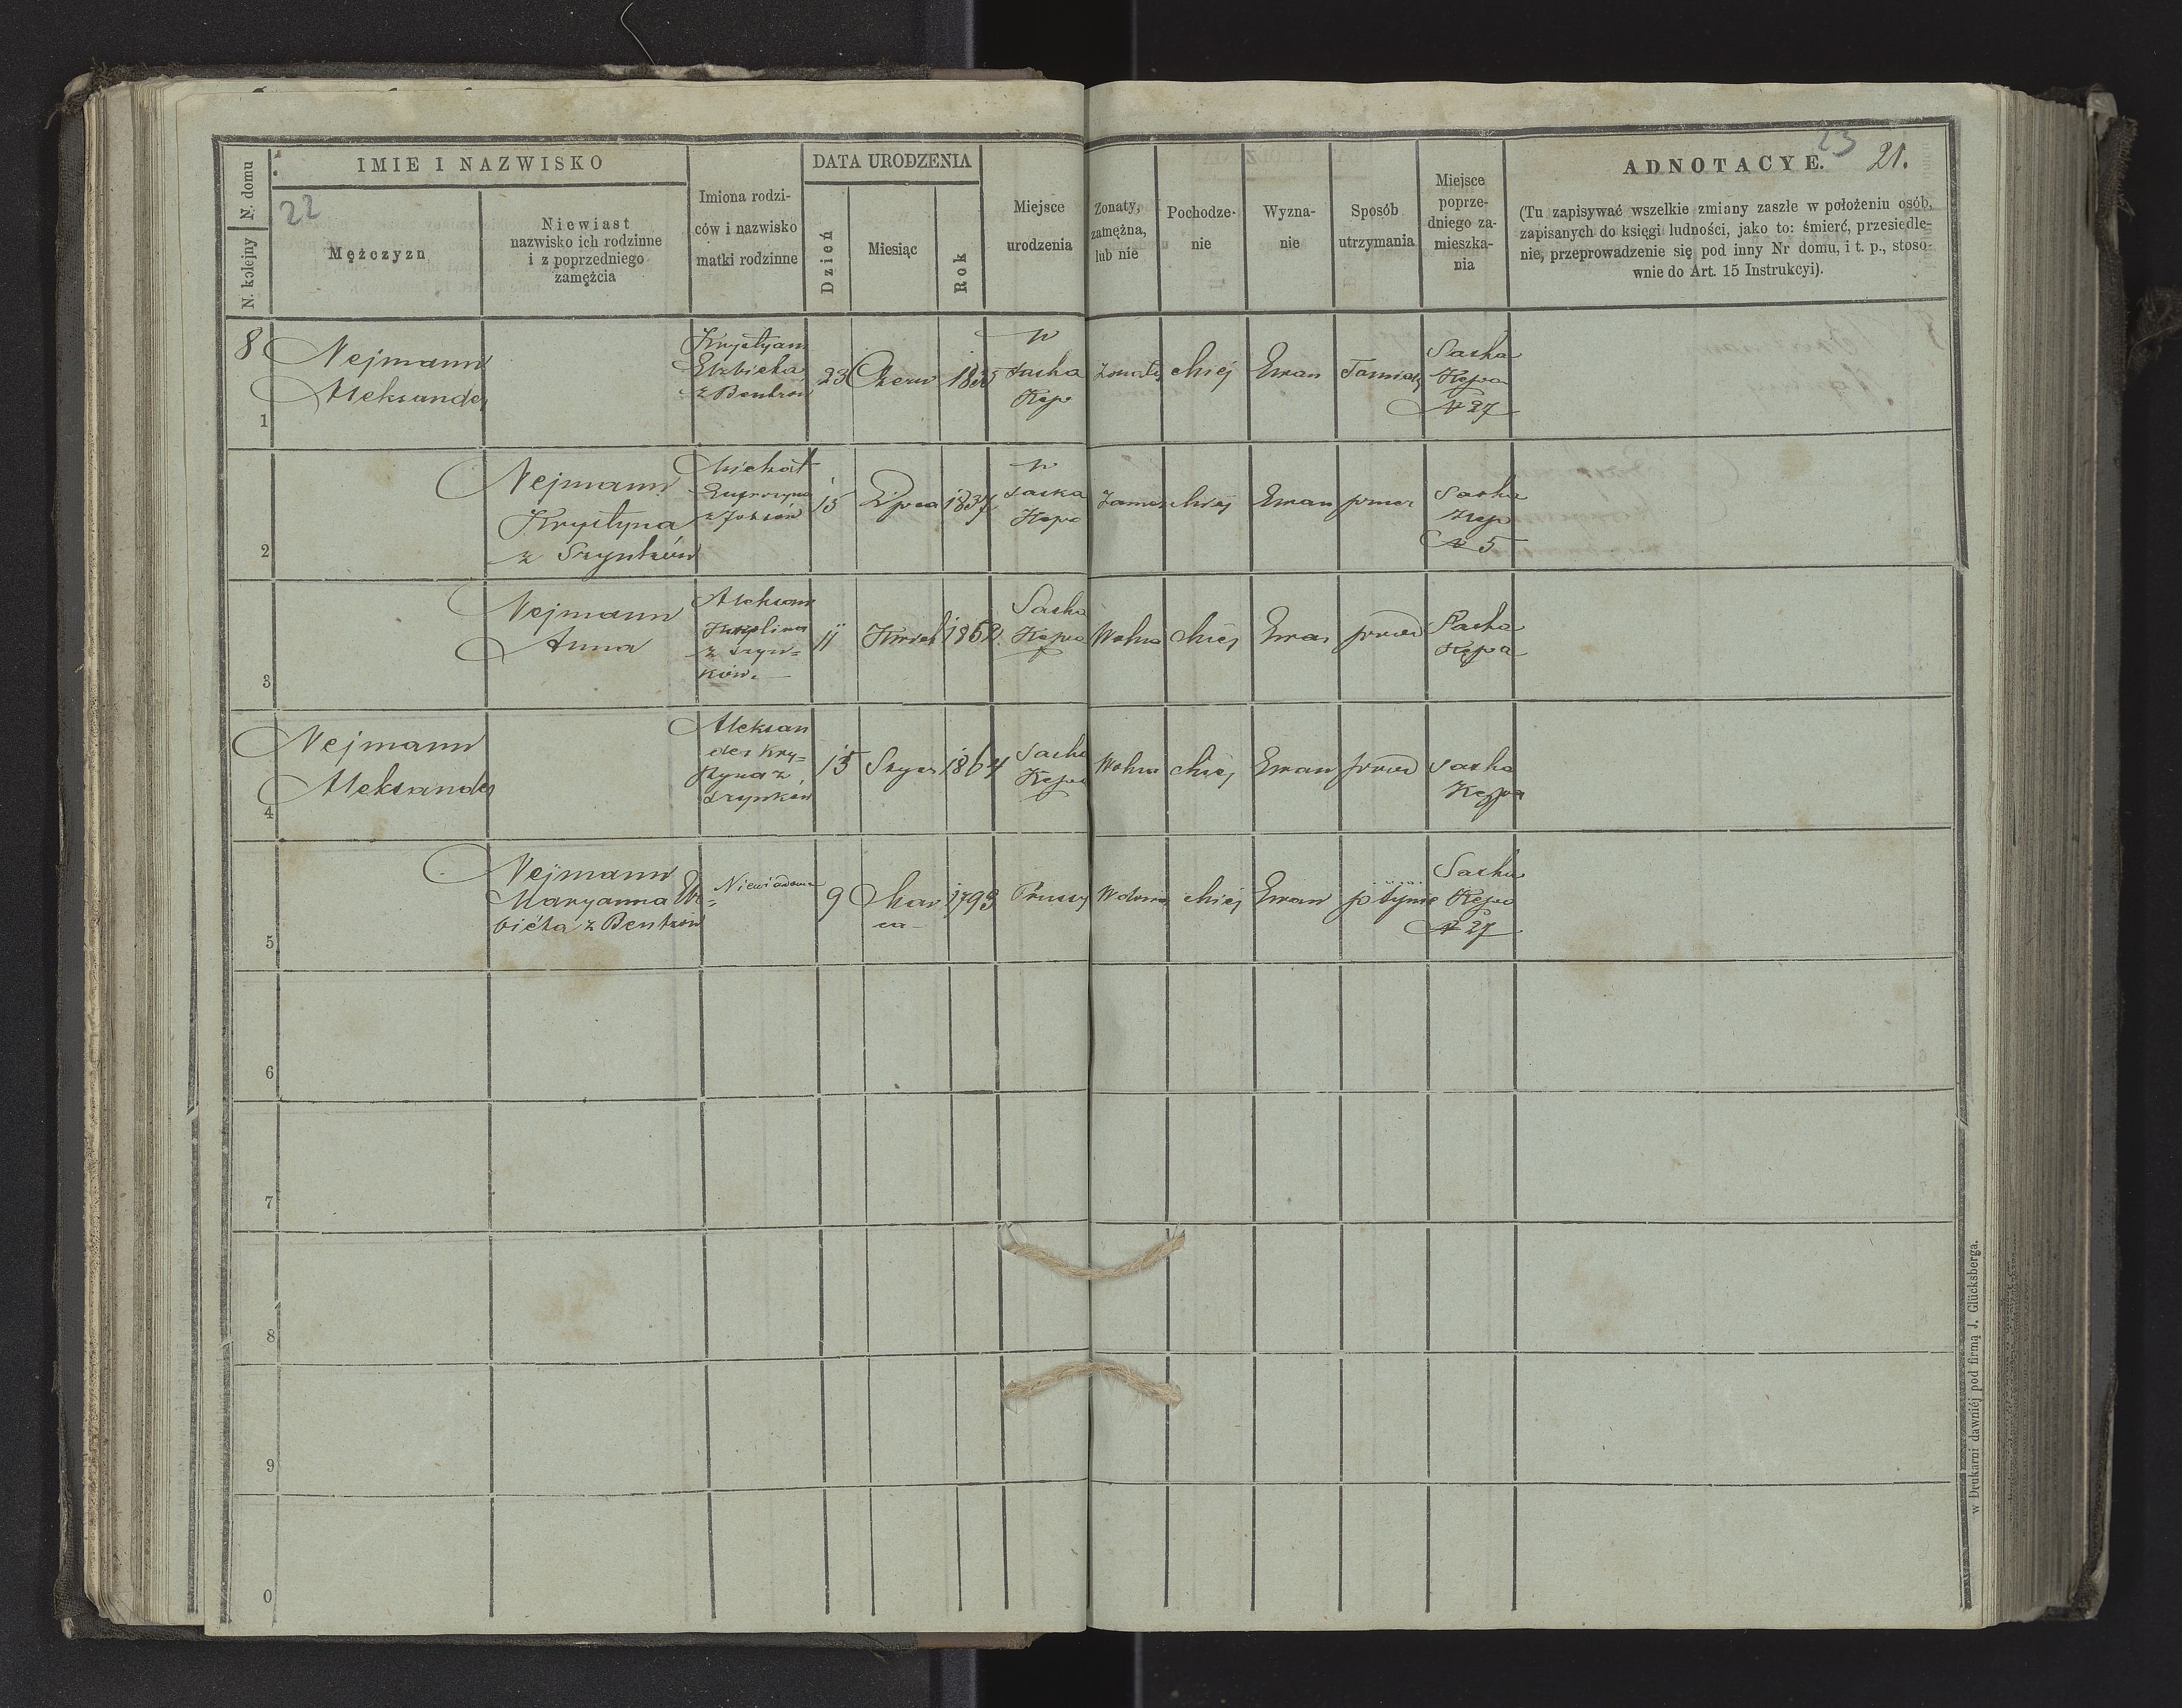 N. kolejny N. domu
IMIE I NAZWISKO
22
Mężczyzn
Niewiast
nazwisko ich rodzinne
i z poprzedniego
zamężcia
Imiona rodzi-
ców i nazwisko
matki rodzinne
DATA URODZENIA
Dzień
Miesiąc
Rok
Miejsce
urodzenia
Żonaty,
zamężna,
lub nie
Pochodze-
nie
Wyzna-
nie
Sposób
utrzymania
Miejsce
poprze-
dniego za-
mieszka-
nia
23
ADNOTACYE. 21.
(Tu zapisywać wszelkie zmiany zaszłe w położeniu osób,
zapisanych do księgi ludności, jako to: śmierć, przesiedle-
nie, przeprowadzenie się pod inny Nr domu, i t. p., stoso-
wnie do Art. 15 Instrukcyi).
8
1
Nejmann
Aleksander
Krystyan
Elzbieta
z Bentzow
23
Czerw
1835
w
Saska
Kępa
Zonaty
chłej
Ewan
Saska
Kępa
N 27
2
Nejmann
Krystyna
z Szynków
Michał
15
Lipca
1837
w
Saska
Kępa
Zamez
chłej
Ewan
Saska
Kęp
N 5
3
Nejmann
Anna
Aleksan
z Szyn=
ków.
11
Kwiet
1862
Saska
Kępa
Wolna
chłej
Ewan
Saska
Kępa
4
Nejmann
Aleksander
Aleksan
der Kry-
styna z
Szynków
15
Stycz
1864
Saska
Kępa
Wolna
chłej
Ewan
Saska
Kępa
5
Nejmann
Maryanna Elż=
bieta z Bentzow
Niewiadome
9
Mar
ca
1793
Prussy
Wdowa
chłej
Ewan
przy synie
Saska
Kępa
N 27
6
7
8
9
0
w Drukarni dawniéj pod firmą J. Glücksberga.